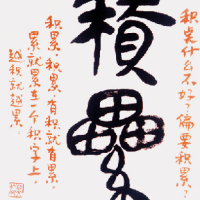 积点什么不好?偏要积累?
積纍
积累,积累,有积就有累。
累就累在一个积字上,
越积就越累。